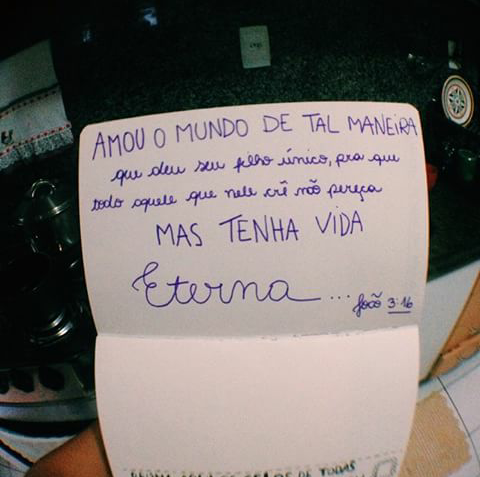 AMOU O MUNDO DE TAL MANEIRA
que deu seu filho único, pra que
todo aquele que nele crê não pereça
MAS TENHA VIDA
Eterna...
João 3:16
DE TODAS